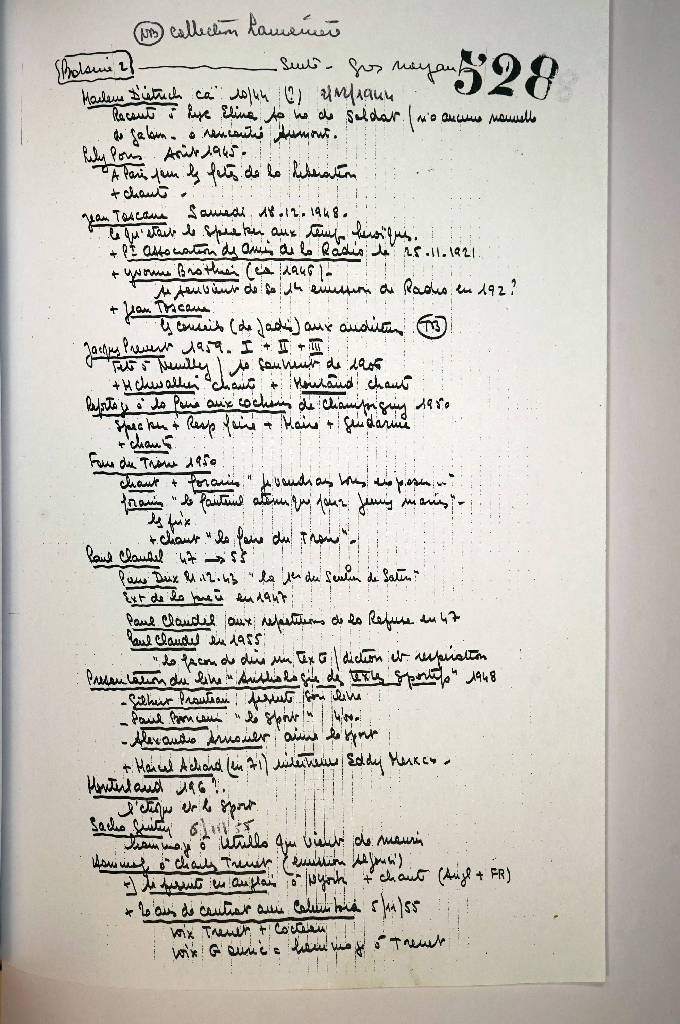 NB collection
Bobine 2 Suite - Gros noyau 528
Marlene Dietrich ca 10/44 (?) 2/11/1944
Raconte à Elina sa vie de Soldat / n'a aucune nouvelle
de Gabin - a rencontré Aumont.
Lily Pons Août 1945.
A Paris pour les fêtes de la Libération
+ chante.
Jean Toscane Samedi 18.12.1948.
Ce qu'était le Speaker aux temps héroïques.
+ 1re Association des Amis de la Radio le 25.11.1921
+ Yvonne Brothier (ca 1946).
se souvient de sa 1re émission de Radio en 192?
+ Jean Toscane
Les conseils (de jadis) aux auditeurs TB
Jacques Prevert 1959. I + II + III
à Neuilly / se souvient de 1906
+ M Chevallier chante + Montand chante
Reportage à la foire aux cochons de Champigny 1950
Speaker + Resp foire + Maire + Gendarme
+ chants
Foire du Trone 1950
chant + forains "je voudrais vous exposer..."
forains "le fauteuil pour jeunes mariés"-
les prix
+ chant "la foire du Trone".
Paul Claudel 47 → 55
21.12.43 "la 1re du Soulier de Satin"
Ext de la en 1947
Paul Claudel aux répétitions de la en 47
Paul Claudel en 1955
"la façon de dire un texte / diction et respiration
Présentation du livre "Anthologie des textes sportifs" 1948
- Gilbert Prouteau présente son livre
- Paul "le sport"
- Alexandre Arnoux aime le sport
+ Marcel Achard (en 71) interviewe Eddy Merckx -
Monterland 196?.
l'éthique et le sport
Sacha Guitry 5/11/55
hommage à Utrillo qui vient de mourir
Hommage à Charles Trenet (émission
+) se présente en anglais à NYork + chante (Angl + FR)
+ 20 ans de contrat avec Columbia 5/11/55
voix Trenet + Cocteau
voix G = hommage à Trenet